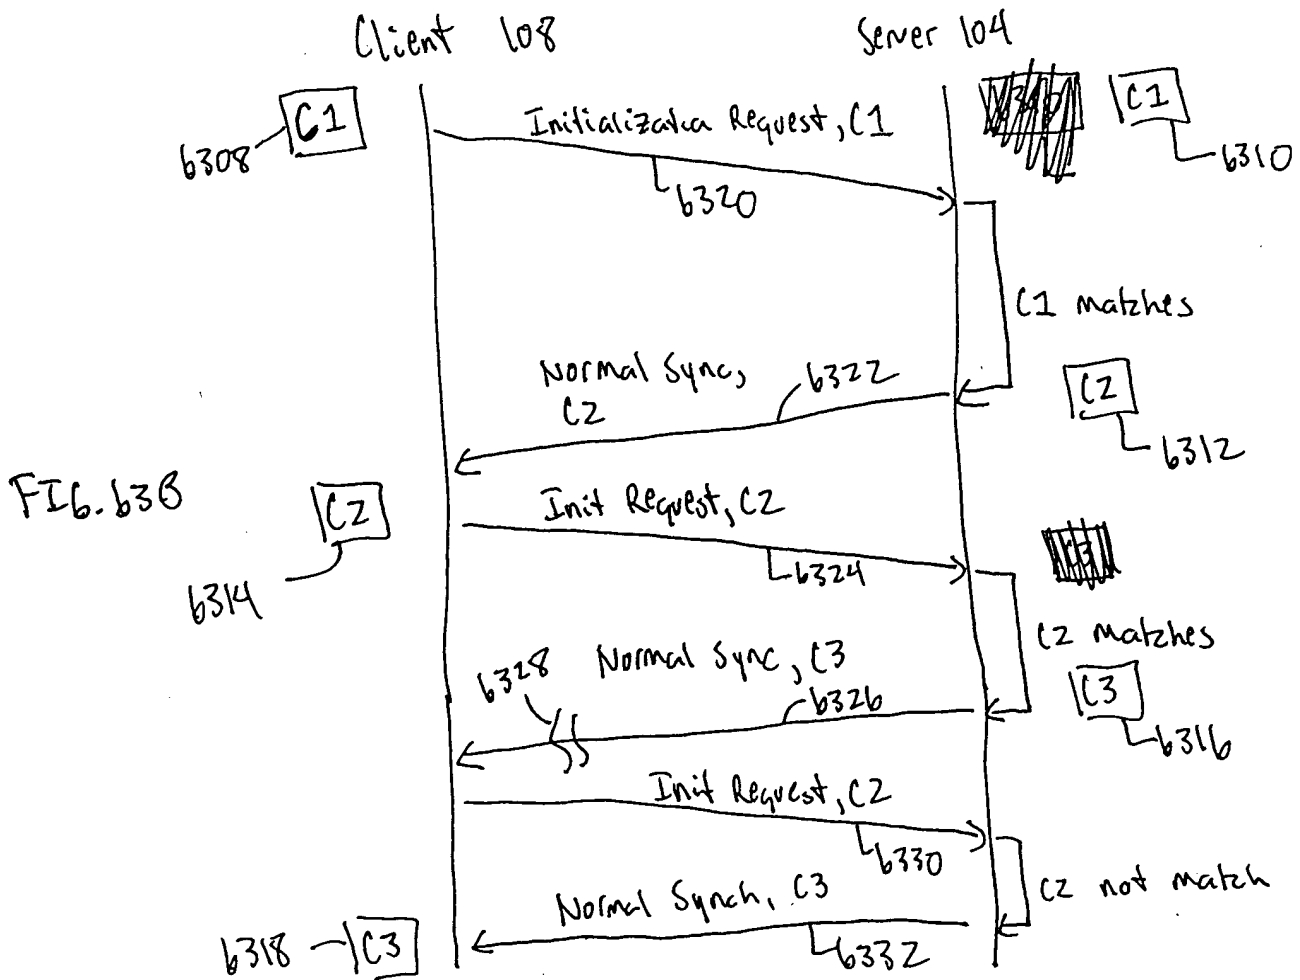 Client 108
Server 104
C1
6308
Initialization Request, C1
C1
6310
6320
C1 matches
Normal Sync,
C2
6322
C2
6312
FIG. 63B
C2
6314
Init Request, C2
6324
C2 matches
6328
Normal Sync, C3
6326
C3
6316
Init Request, C2
6330
C2 not match
Normal Synch, C3
6332
6318
C3